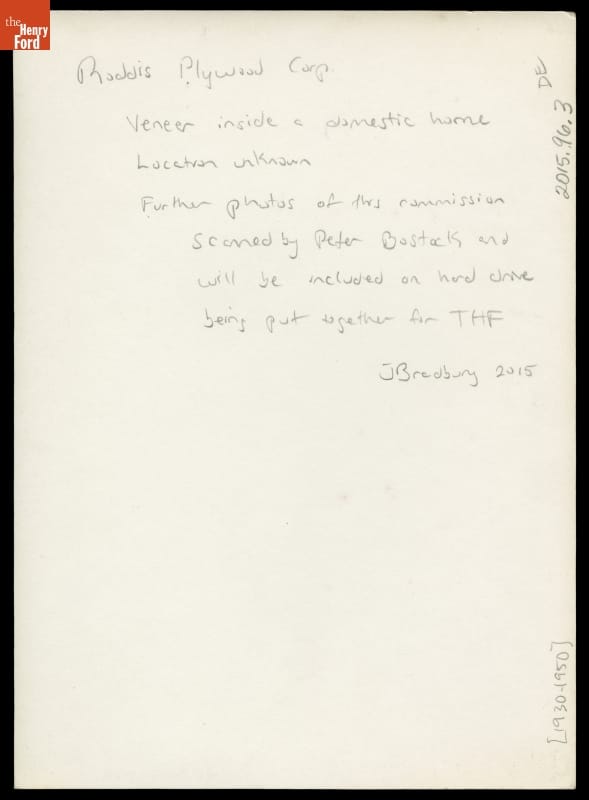 the
Henry
Ford
Roddis Plywood Corp.
Veneer inside a domestic home
Location unknown
Further photos of this commission
Scanned by Peter Bostock and
will be included on hard drive
being put together for THF
JBradbury 2015
DE
2015.96.3
[1930-1950]